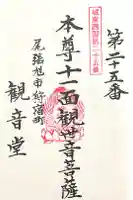 第二十五番
城東西国第二十五番
本尊十一面観世音菩薩
尾張旭市狩宿町
観音堂